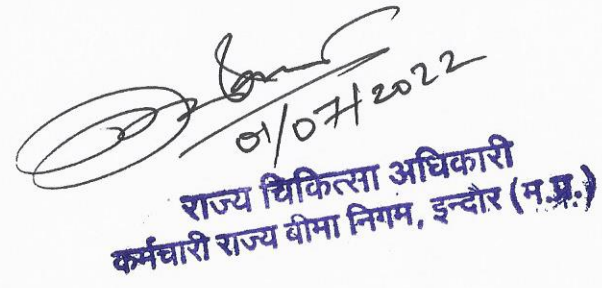 01/07/2022
राज्य चिकित्सा अधिकारी
कर्मचारी राज्य बीमा निगम, इन्दौर (म.प्र.)